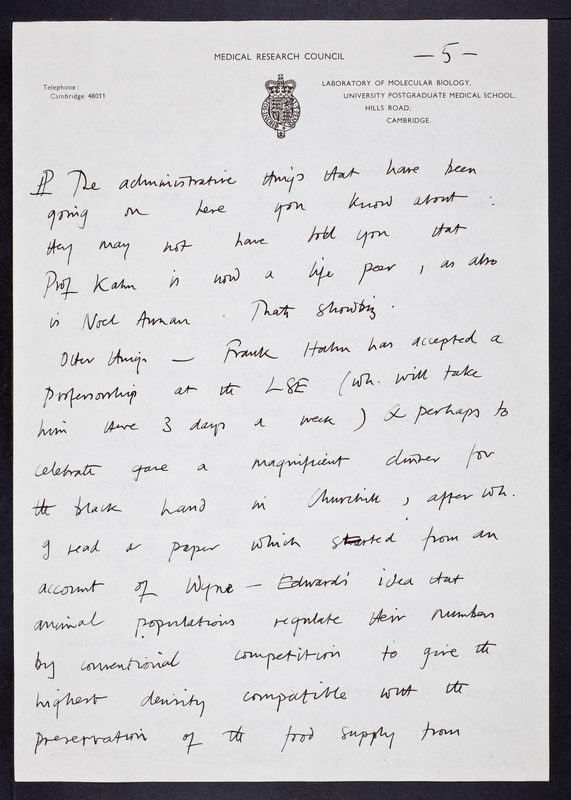 MEDICAL RESEARCH COUNCIL
— 5 —
Telephone:
Cambridge 48011
LABORATORY OF MOLECULAR BIOLOGY,
UNIVERSITY POSTGRADUATE MEDICAL SCHOOL,
HILLS ROAD,
CAMBRIDGE.
The administrative things that have been
going on here you know about :
they may not have told you that
Prof Kahn is now a life peer, as also
is Noel Annan. Thats showbiz.
Other things — Frank Hahn has accepted a
professorship at the LSE (wh. will take
him there 3 days a week) & perhaps to
celebrate gave a magnificent dinner for
the black hand in Churchill, after wh.
I read a paper which started from an
account of Wyne-Edwards' idea that
animal populations regulate their numbers
by conventional competition to give the
highest density compatible with the
preservation of the food supply from